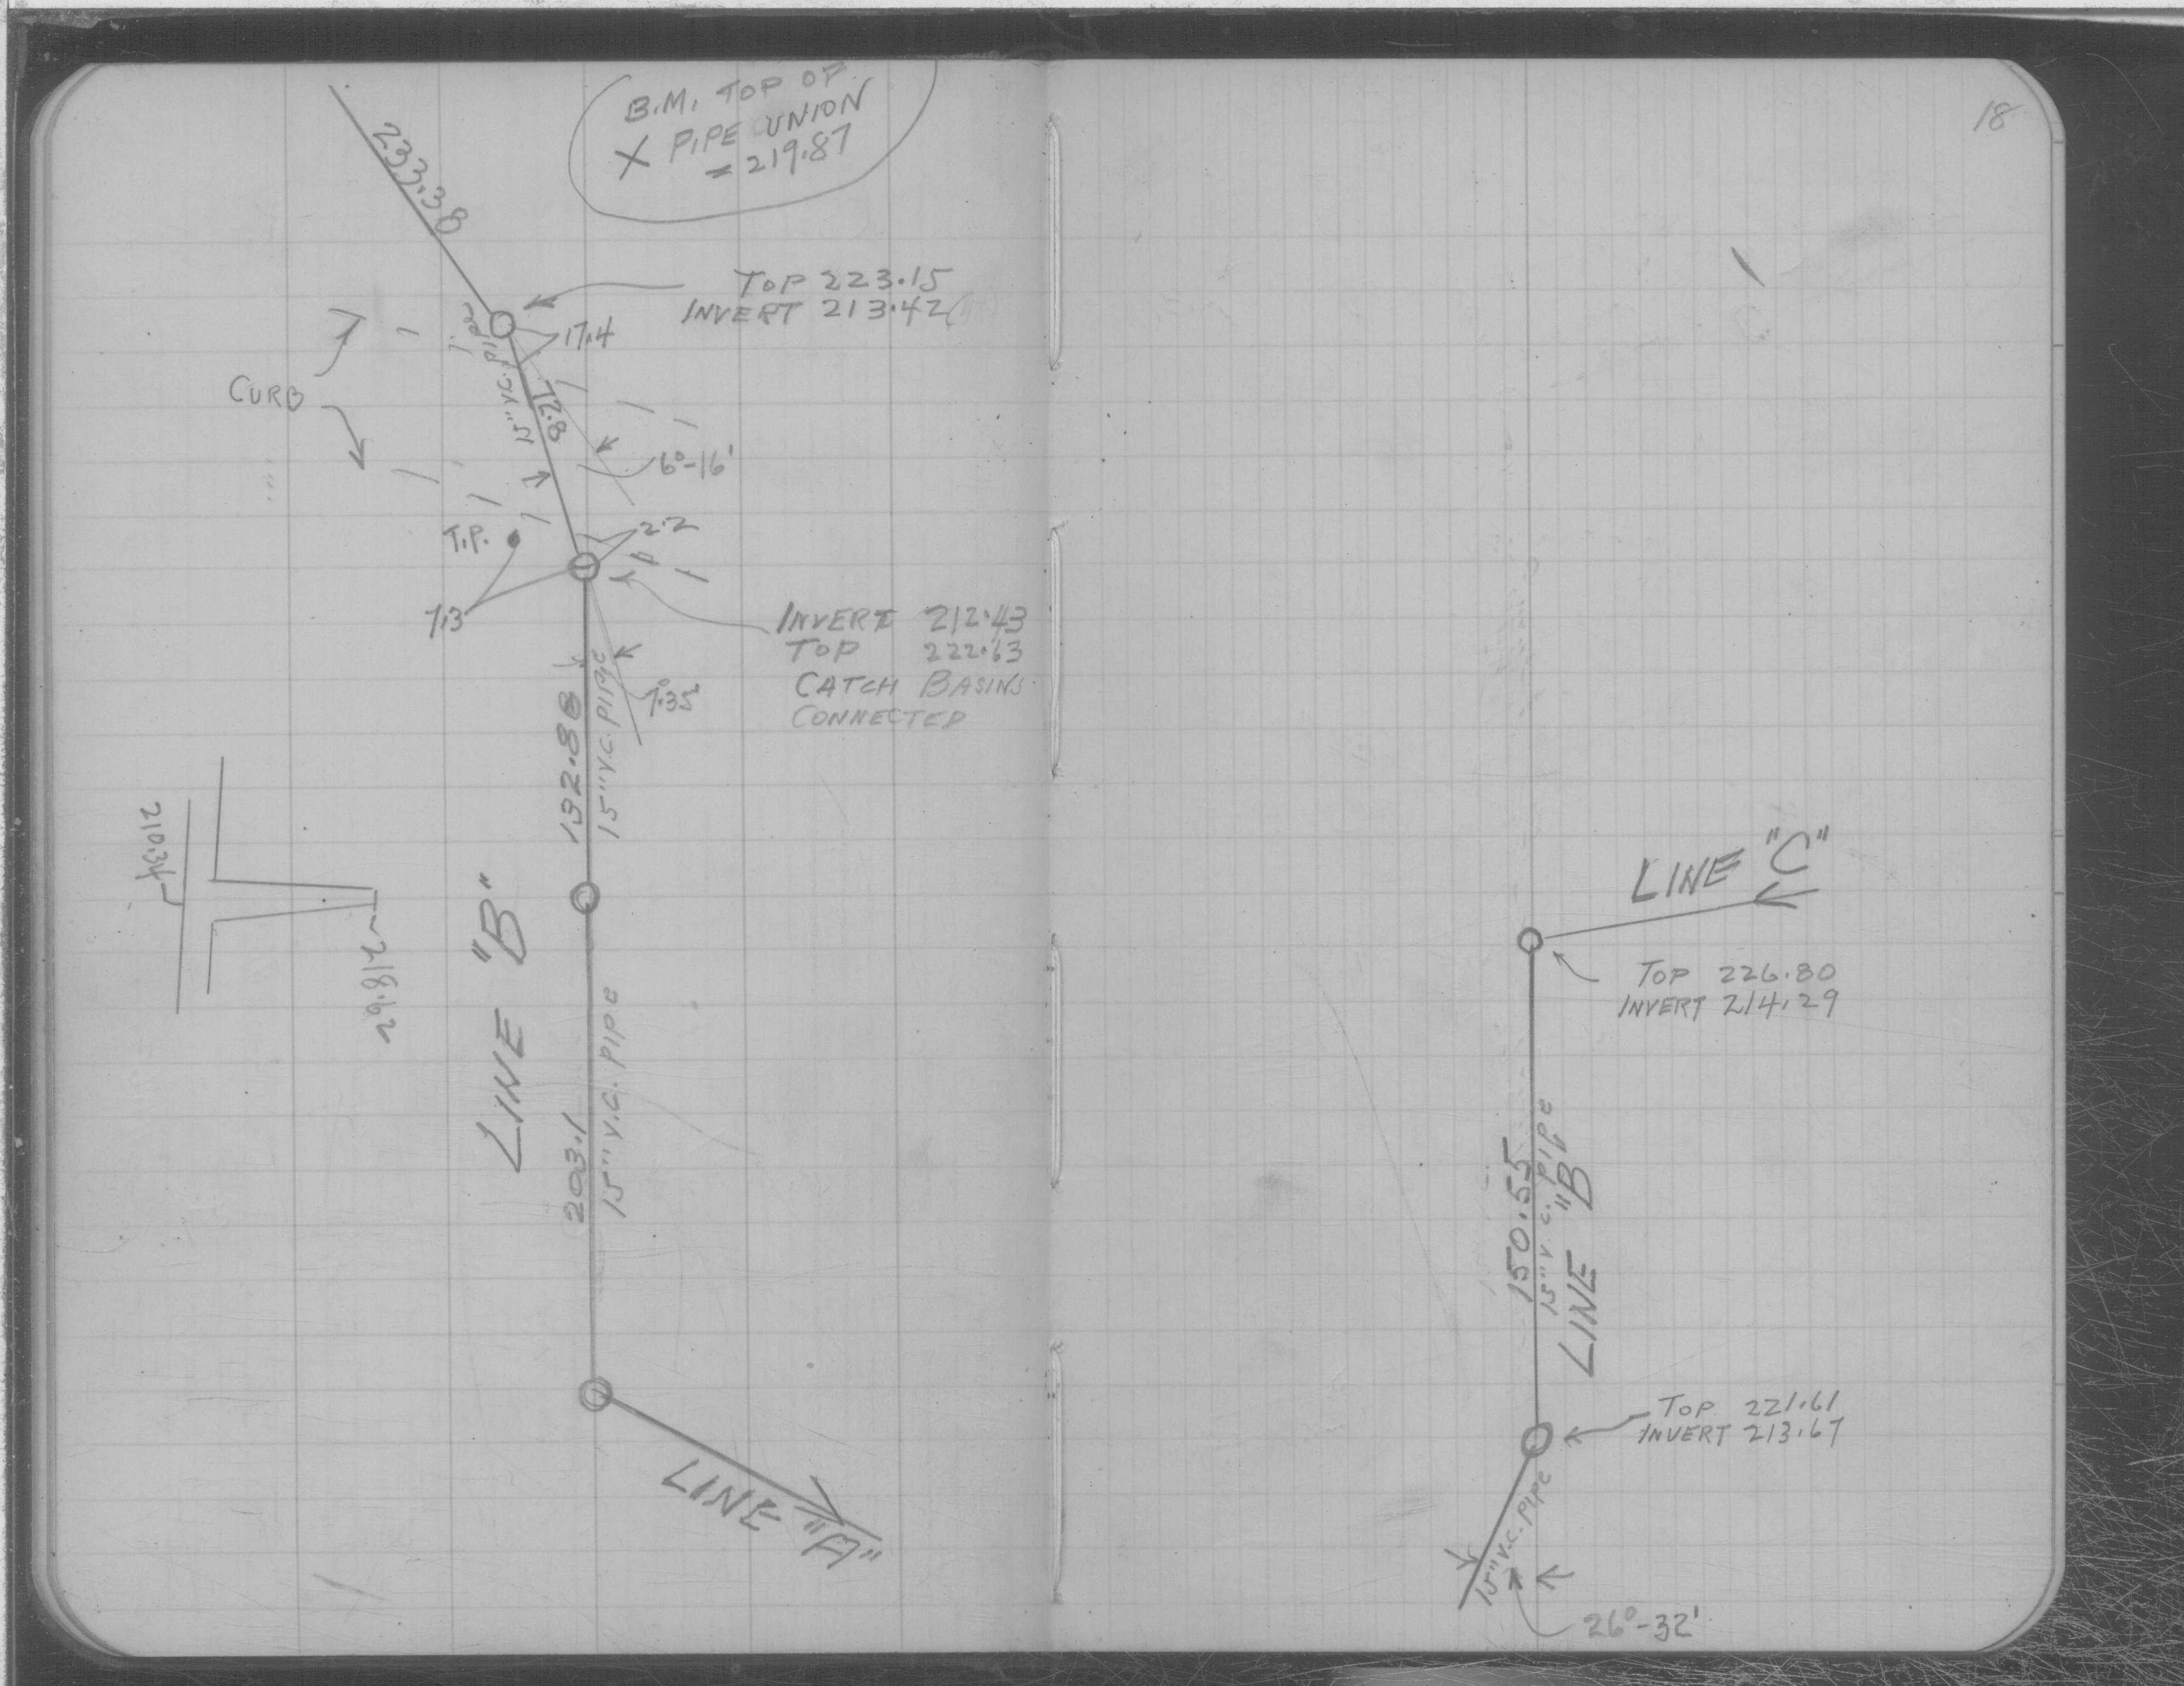 B.M. TOP OF
X PIPE UNION
= 219.87
233.38
TOP 223.15
INVERT 213.42
17.4
CURB
15" V.C. Pipe
6°-16'
T.P.
2.2
7.3
INVERT 212.43
TOP 222.63
CATCH BASINS
CONNECTED
7°35'
132.88
15" V.C. PIPE
210.34
218.62
LINE "B"
203.1
15" V.C. PIPE
LINE "A"
18
LINE "C"
TOP 226.80
INVERT 214.29
150.55
15" V.C. PIPE
LINE "B"
TOP 221.61
INVERT 213.67
15" V.C. PIPE
26°-32'